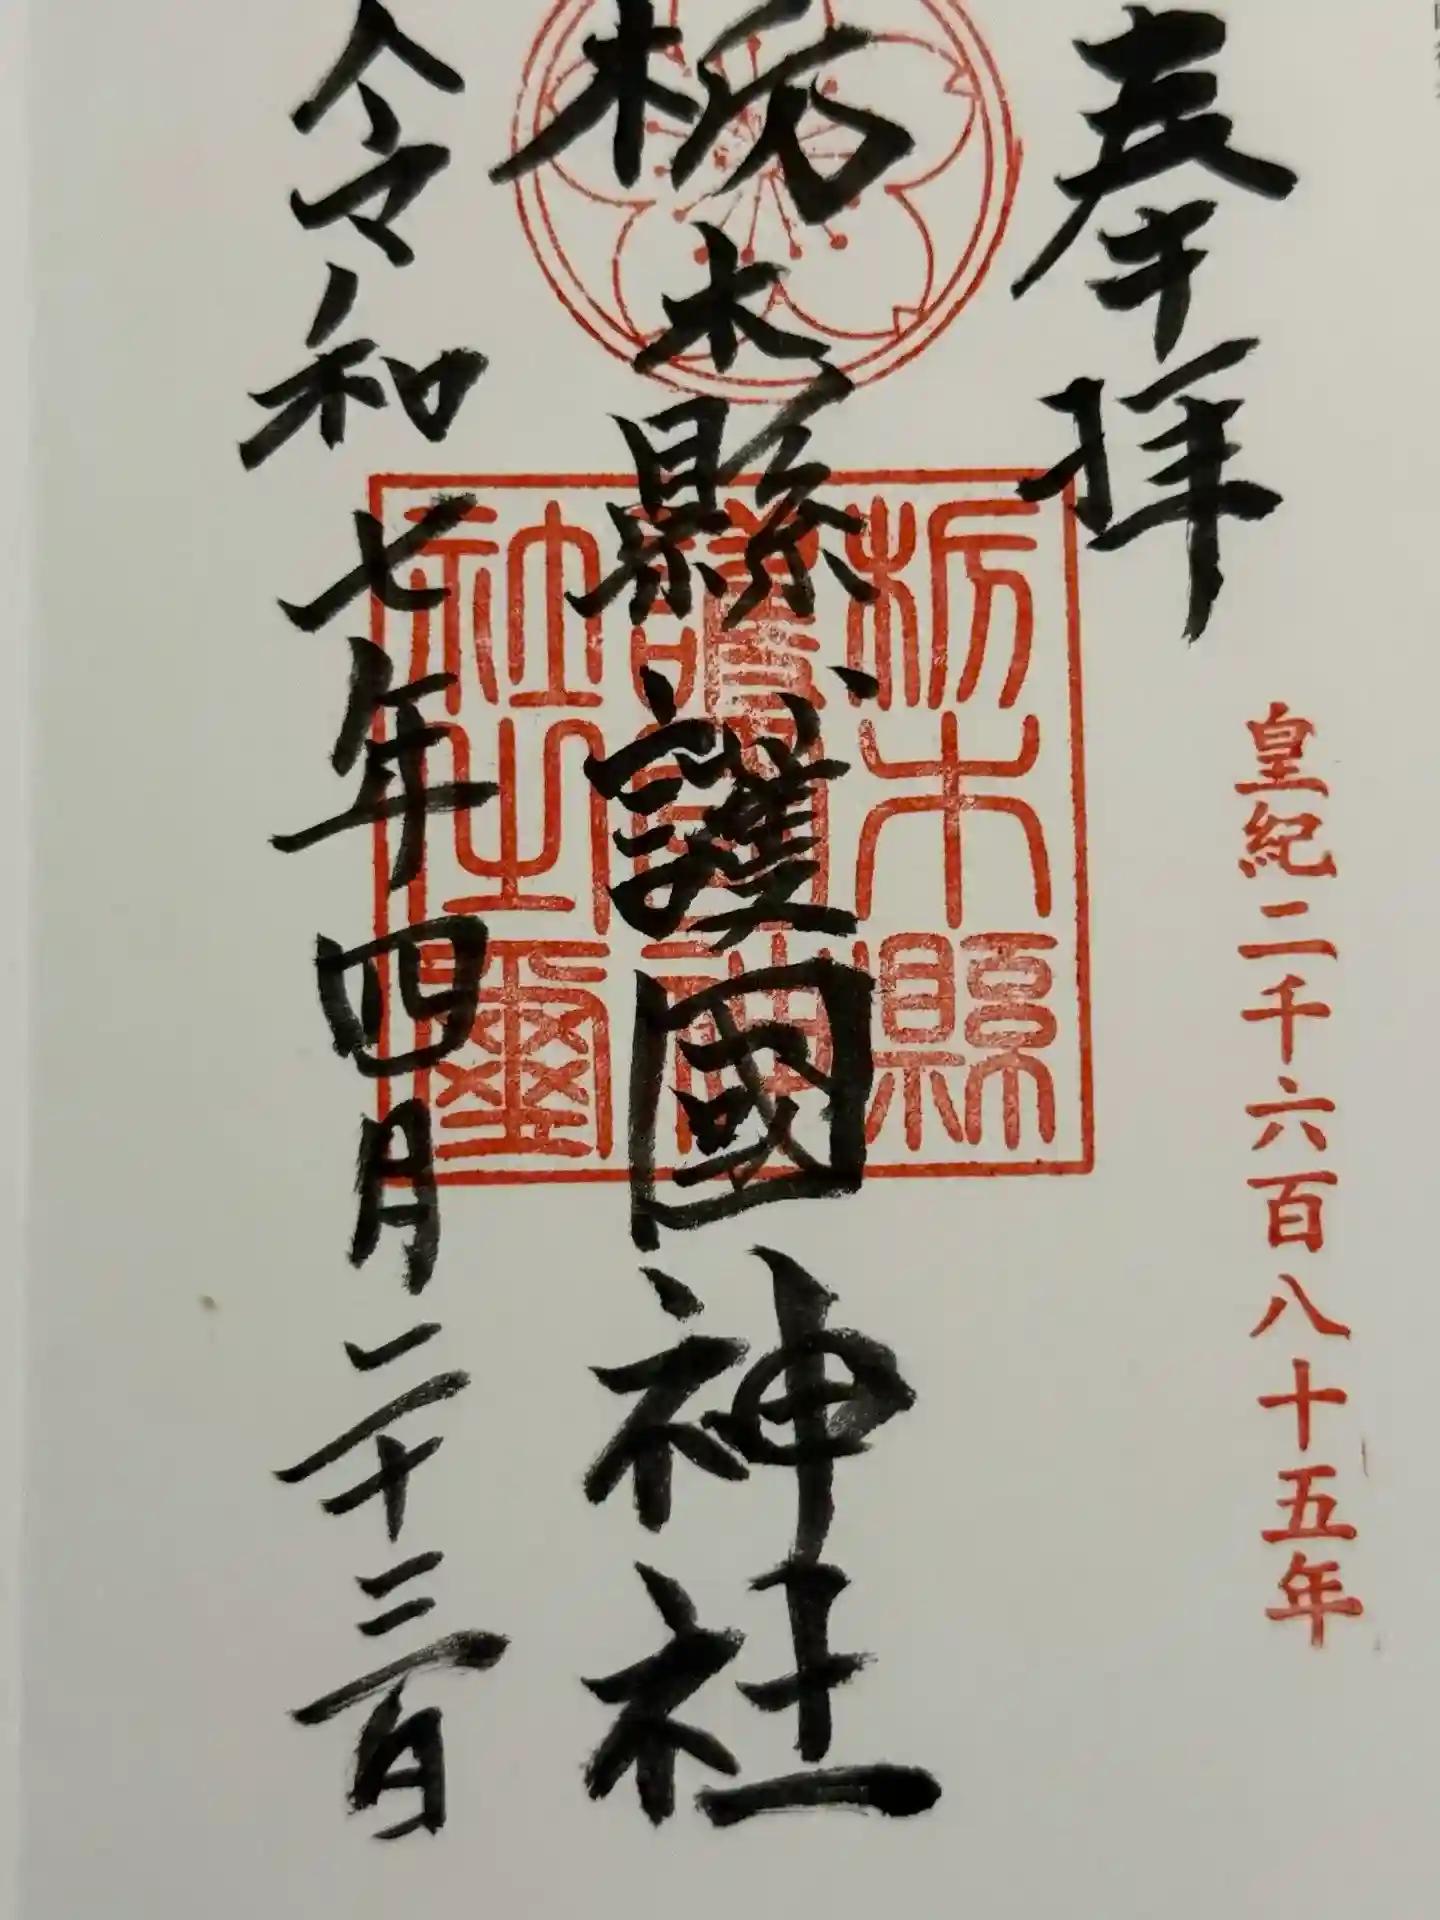 奉拝
皇紀二千六百八十五年
栃木縣護國神社
栃木縣
護國神
社之璽
令和七年四月二十三日